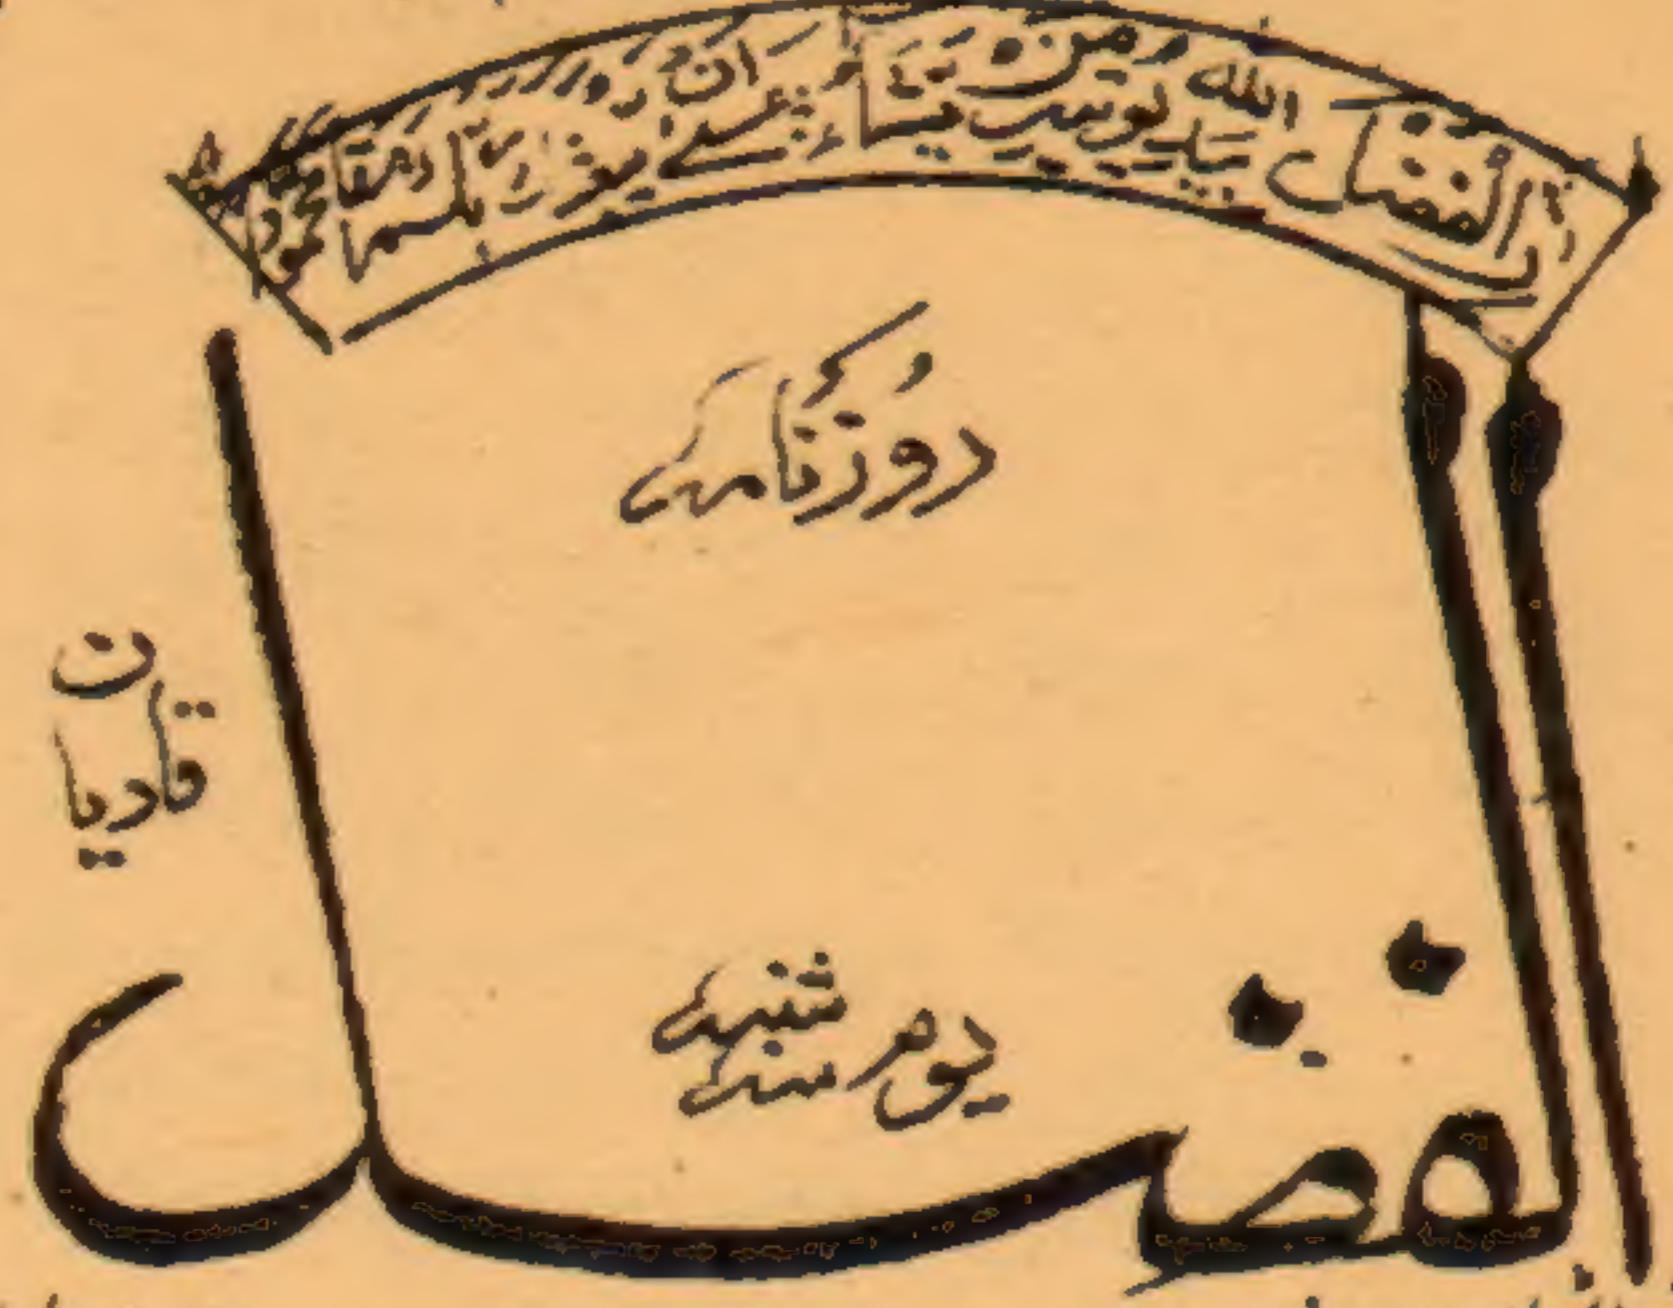 ان الفضل بيد الله يوتيه من يشاء عسى ان يبعثك ربك مقاما محمودا
روزنامہ
الفضل
قادیان
یوم سہ شنبہ